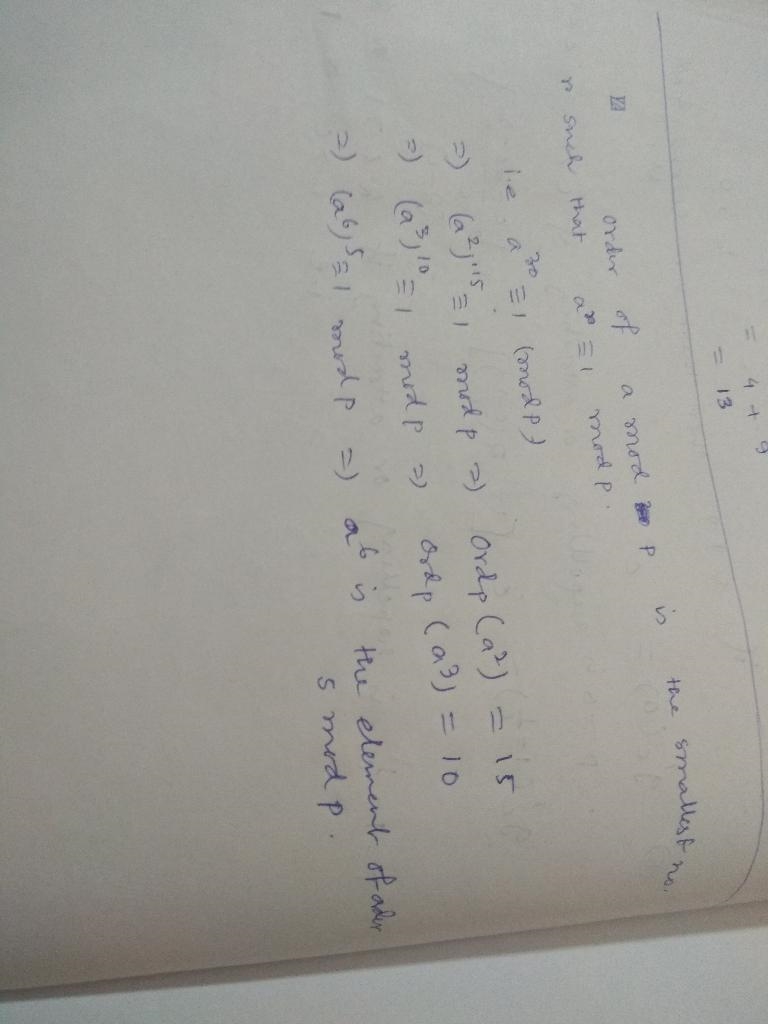 = 4 + 9
= 13
order of a mod p is the smallest no.
r such that aʳ ≡ 1 mod p.
i.e a³⁰ ≡ 1 (mod p)
=) (a²)¹⁵ ≡ 1 mod p =) ordp (a²) = 15
=) (a³)¹⁰ ≡ 1 mod p =) ordp (a³) = 10
=) (a⁶)⁵ ≡ 1 mod p =) a⁶ is the element of order
5 mod p.